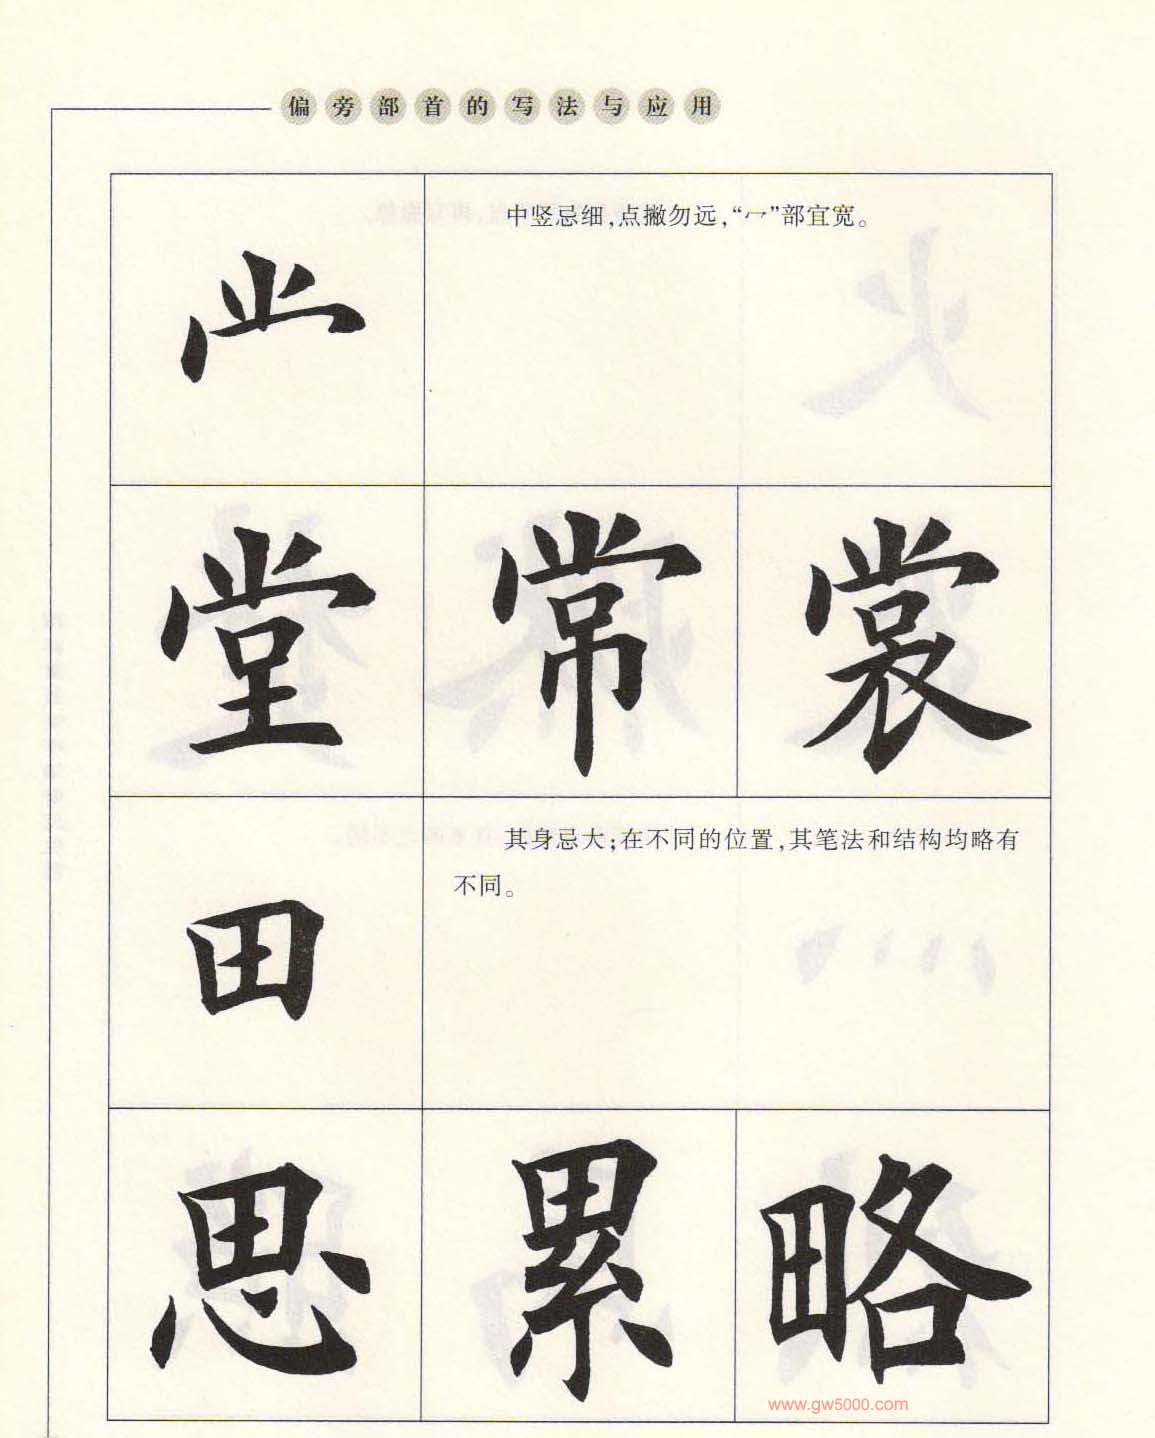 偏旁部首的写法与应用
中竖忌细，点撇勿远，“冖”部宜宽。
堂 常 裳
其身忌大；在不同的位置，其笔法和结构均略有
不同。
田
思 累 略
www.gw5000.com